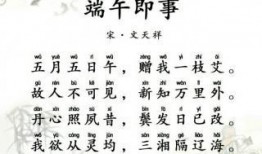 端午即事
宋·文天祥
wǔ yuè wǔ rì wǔ, zèng wǒ yì zhī ài
五月五日午，赠我一枝艾。
gù rén bù kě jiàn, xīn zhī wàn lǐ wài
故人不可见，新知万里外。
dān xīn zhào sù xī, bìn fà rì yǐ gǎi
丹心照夙昔，鬓发日已改。
wǒ yù cóng líng jūn, sān xiāng gé liáo hǎi
我欲从灵均，三湘隔辽海。